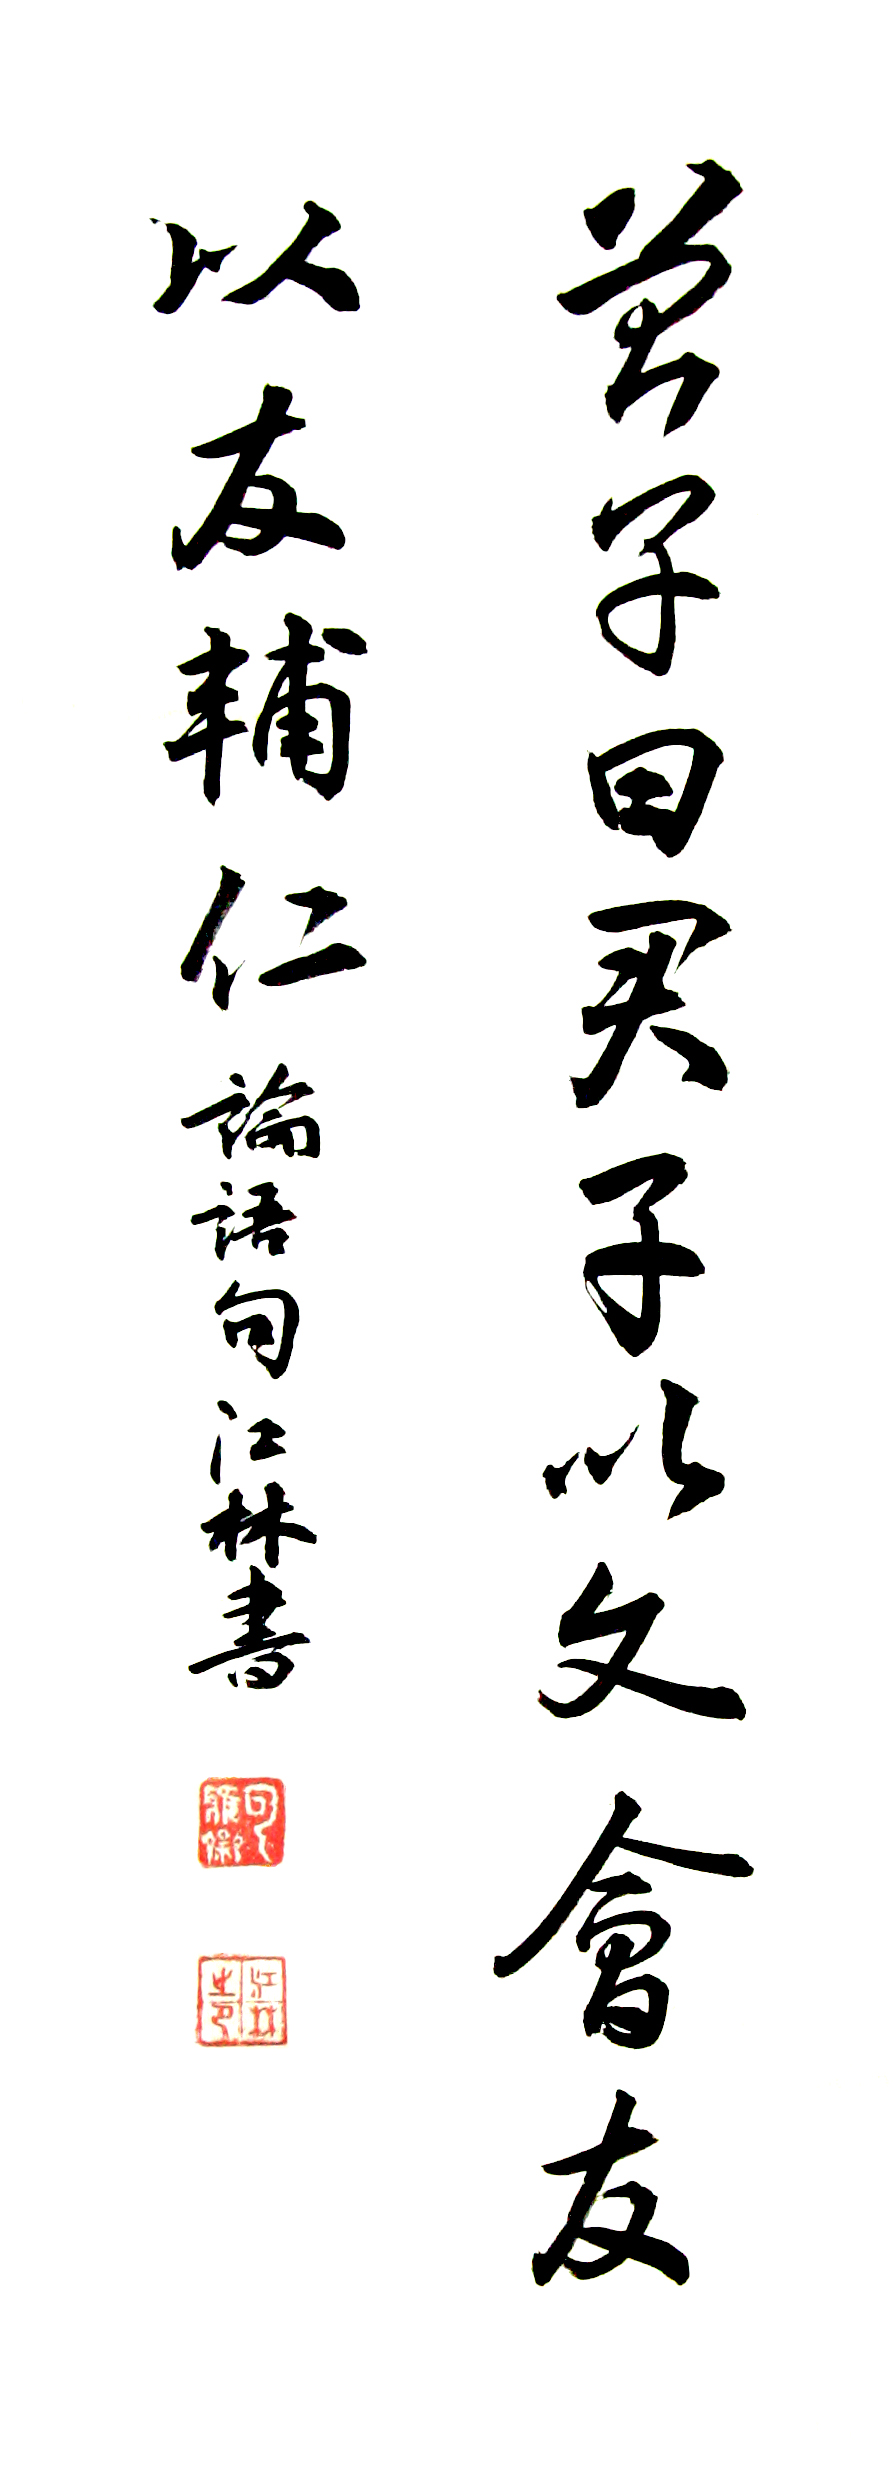 曾子曰君子以文會友
以友輔仁 論語句 江林書
江林之印